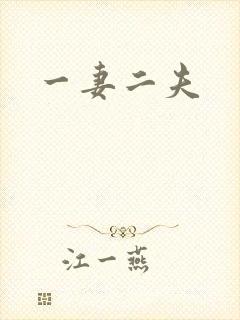 一妻二夫
江一燕